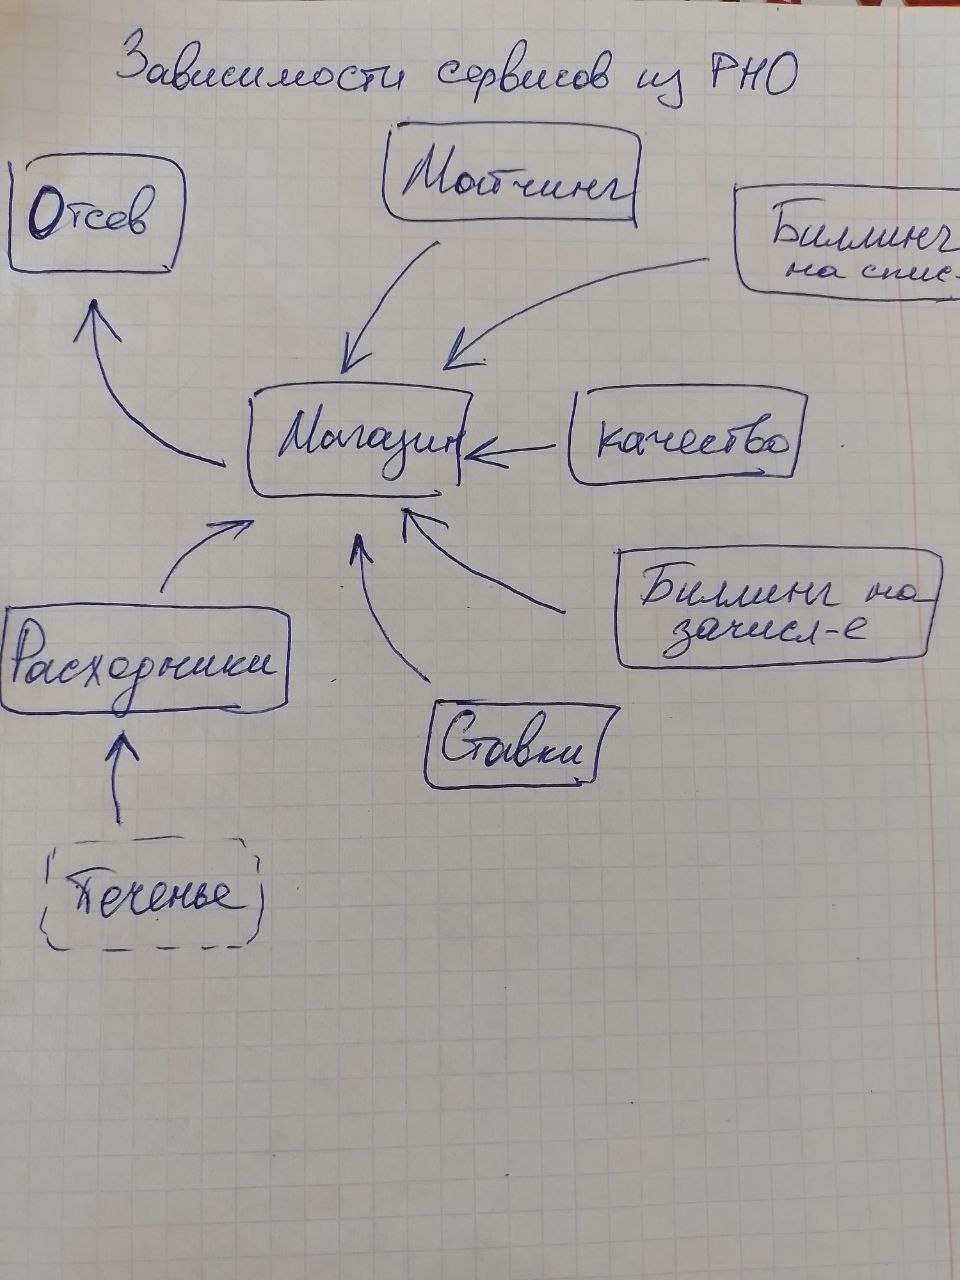 Зависимости сервисов из РНО
Отсев
Матчинг
Биллинг
на спис-
Магазин
качество
Биллинг на
зачисл-е
Расходники
Ставки
Печенье